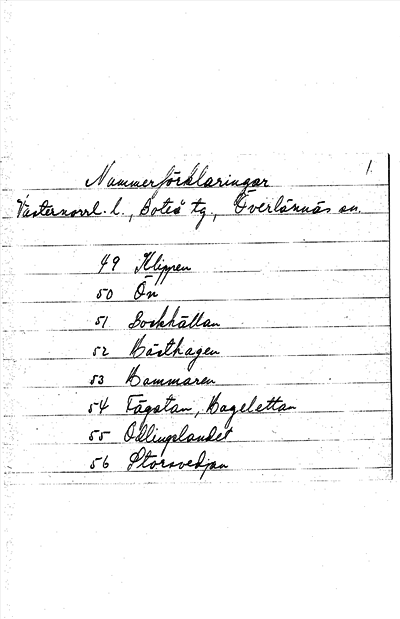 Nummerförklaringar 1.
Västernorrl. l., Boteå tg, Överlännäs sn.
49 Klippen
50 Ön
51 Bockhällan
52 Hästhagen
53 Hammaren
54 Fägatan, Hagelettan
55 Odlingslandet
56 Storsvedjan